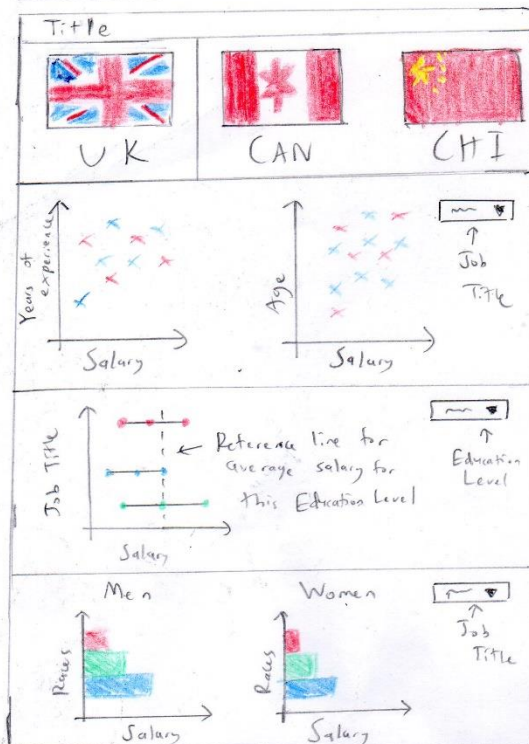 Title
UK
CAN
CHI
Years of
experience
Salary
Age
Salary
Job
Title
Job Title
Salary
Reference line for
average salary for
this Education Level
Education
Level
Men
Races
Salary
Women
Races
Salary
Job
Title